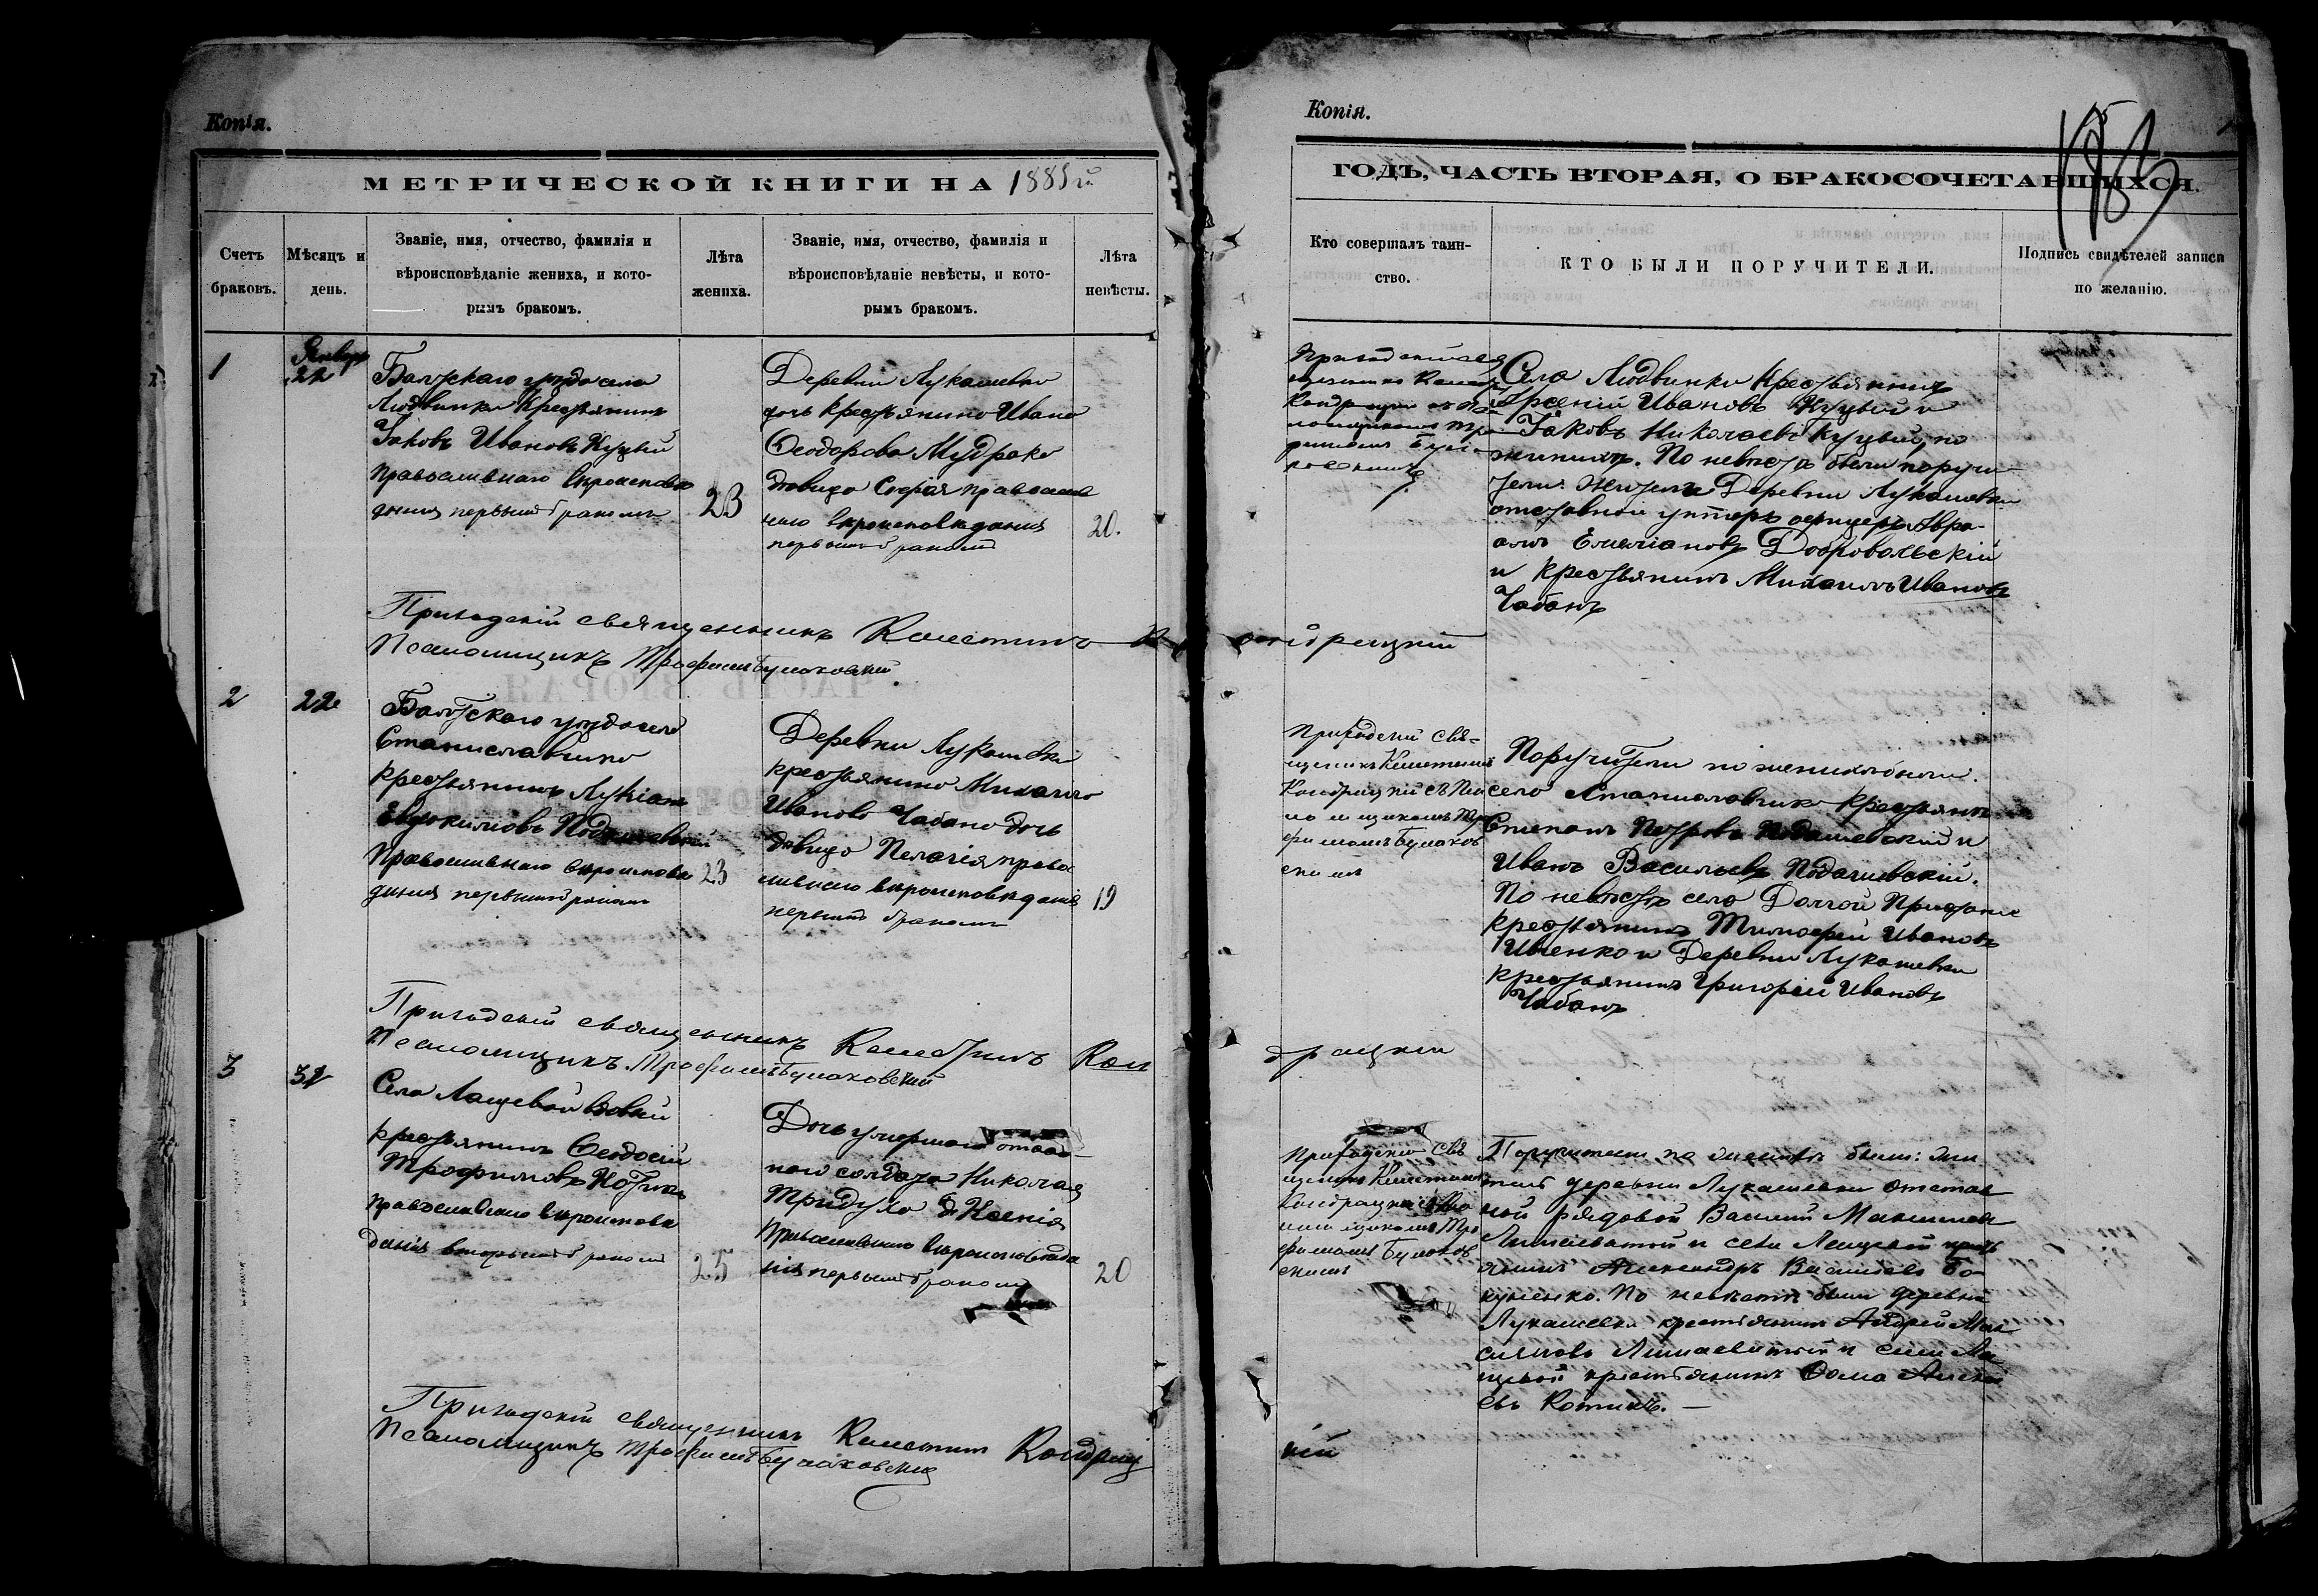 Копія.
МЕТРИЧЕСКОЙ КНИГИ НА 1885 й
Счетъ браковъ.
Мѣсяцъ и день.
Званіе, имя, отчество, фамилія и
вѣроисповѣданіе жениха, и кото-
рымъ бракомъ.
Лѣта
жениха.
Званіе, имя, отчество, фамилія и
вѣроисповѣданіе невѣсты, и кото-
рымъ бракомъ.
Лѣта
невѣсты.
1
Январь
22
Балтскаго уѣзда села
Людвинки крестьянинъ
Іаковъ Ивановъ Куцый
православнаго вѣроисповѣ
данія первымъ бракомъ
23
Деревни Лукашевки
дочь крестьянина Ивана
Ѳеодорова Мудрака
дѣвица Софія православ
наго вѣроисповѣданія
первымъ бракомъ
20.
Приходскій священникъ Келестинъ К
Псаломщикъ Трофимъ Булаховскій.
2
22
Балтскаго уѣзда села
Станиславчика
крестьянинъ Лукіанъ
Евдокимовъ
православнаго вѣроисповѣ
данія первымъ бракомъ
23
Деревни Лукашевки
крестьянина Михаила
Иванова Чабана дочь
дѣвица Пелагія право
славнаго вѣроисповѣданія
первымъ бракомъ
19
Приходскій священникъ Келестинъ Кон
Псаломщикъ Трофимъ Булаховскій
3
Села Лащевой
крестьянинъ Ѳеодосій
Трофимовъ Котикъ
православнаго вѣроисповѣ
данія вторымъ бракомъ
25
Дочь умершаго отстав
наго солдата Николая
Тридуха Ксенія
православнаго вѣроисповѣда
нія первымъ бракомъ
20
Приходскій священникъ Келестинъ Кондрац
Псаломщикъ Трофимъ Булаховскій
Копія.
ГОДЪ, ЧАСТЬ ВТОРАЯ, О БРАКОСОЧЕТАВШИХСЯ.
Кто совершалъ таин-
ство.
КТО БЫЛИ ПОРУЧИТЕЛИ.
Подпись свидѣтелей записи
по желанію.
Приходскій
Села Людвинки крестьянинъ
Арсеній Ивановъ Куцый и
Іаковъ Николаевъ Куцый, по
женихѣ. По невѣстѣ были поручи
тели: жители Деревни Лукашевки
отставной унтеръ офицеръ Авра-
амъ Емеліановъ Добровольскій
и крестьянинъ Михаилъ Ивановъ
Чабанъ
ондрацкій
Приходскій свя-
щеникъ Келестинъ
Кондрацкій съ Пса
ломщикомъ Тро
фимомъ Булахов
скимъ
Поручители по женихѣ были:
села Станиславчика крестьяне
Степанъ Петровъ Подашевскій и
Иванъ Васильевъ Подашевскій.
По невѣстѣ села Долгой Пристани
крестьянинъ Тимофей Ивановъ
и Деревни Лукашевки
крестьянинъ Григорій Ивановъ
Чабанъ
драцкій
Приходскій свя
щеникъ Келестинъ
Кондрацкій съ Пса
ломщикомъ Тро
фимомъ Булахов
скимъ
Поручители по женихѣ были: жи
тели деревни Лукашевки отстав
ной рядовой Василій Максимов
и села Лащевой крест
янинъ Александръ Васильевъ
По невѣстѣ были деревни
Лукашевки крестьянинъ Андрей Мак
симовъ и села Ла
щевой крестьянинъ Ѳома Алексѣ
евъ Котикъ. —
кій